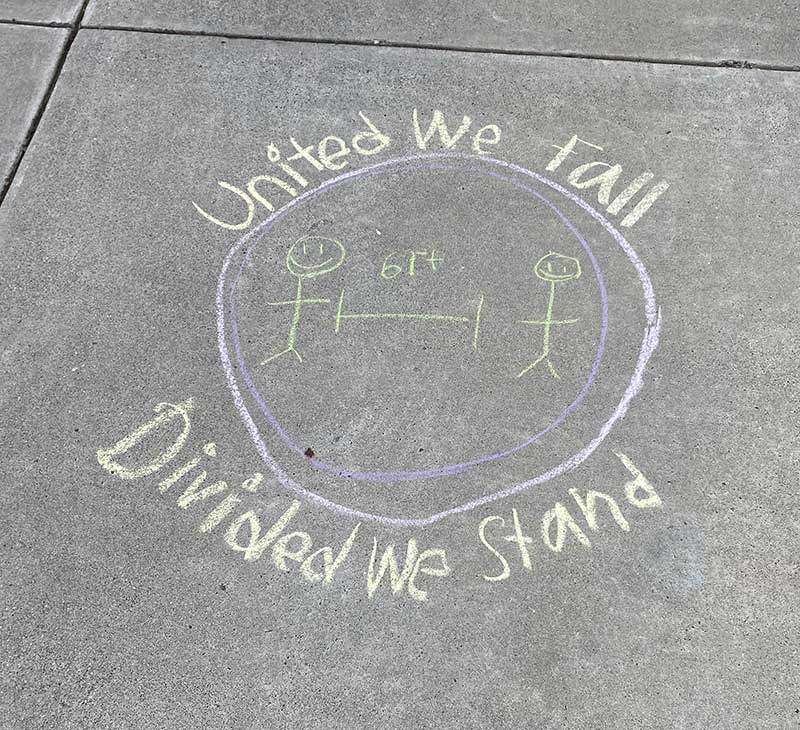 United We Fall
6ft
Divided We Stand